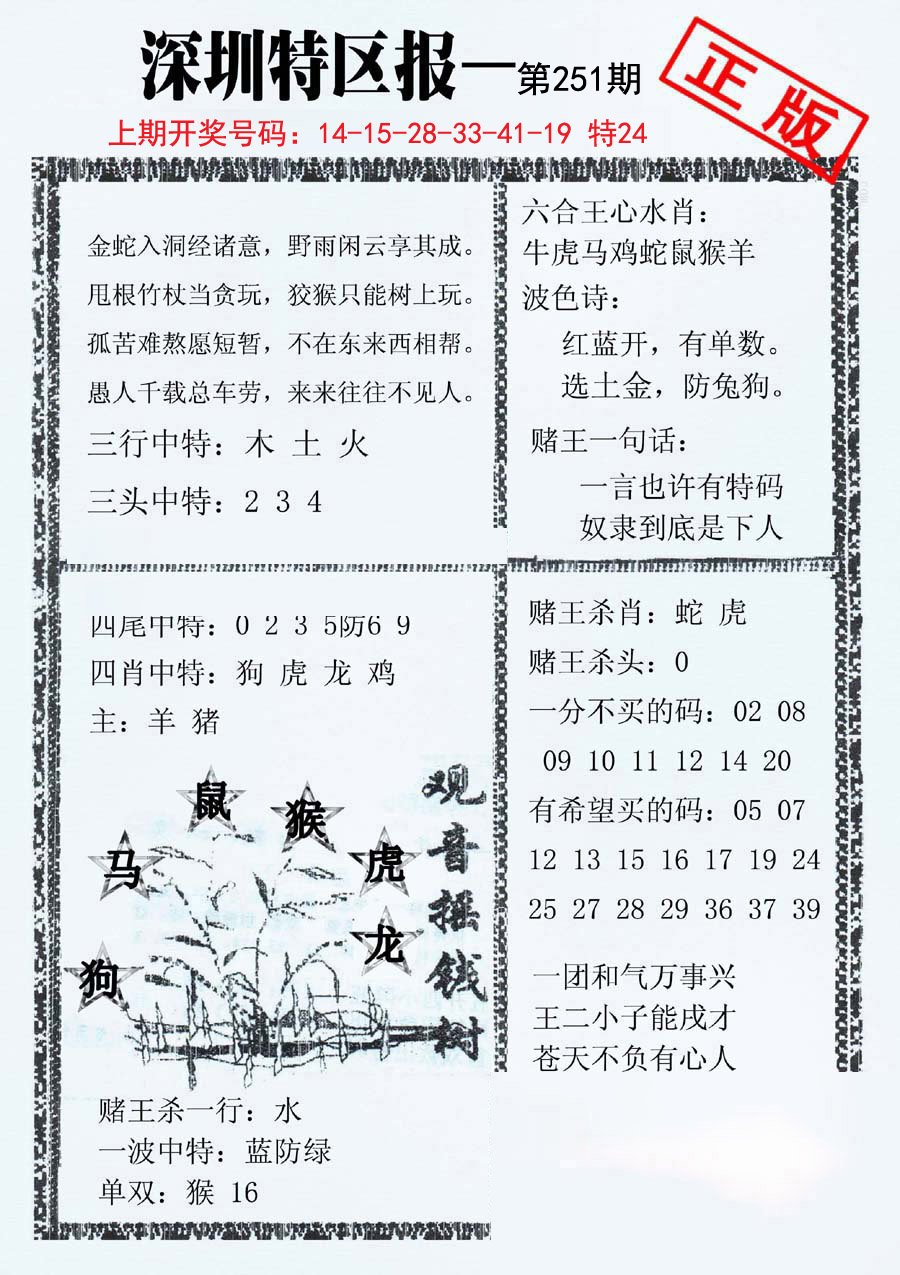 深圳特区报—第251期
正版
上期开奖号码：14-15-28-33-41-19 特24
金蛇入洞经诸意，野雨闲云享其成。
甩根竹杖当贪玩，狡猴只能树上玩。
孤苦难熬愿短暂，不在东来西相帮。
愚人千载总车劳，来来往往不见人。
三行中特：木 土 火
三头中特：2 3 4
六合王心水肖：
牛虎马鸡蛇鼠猴羊
波色诗：
红蓝开，有单数。
选土金，防兔狗。
赌王一句话：
一言也许有特码
奴隶到底是下人
四尾中特：0 2 3 5防6 9
四肖中特：狗 虎 龙 鸡
主：羊 猪
鼠
猴
马
虎
龙
狗
观音摇钱树
赌王杀一行：水
一波中特：蓝防绿
单双：猴 16
赌王杀肖：蛇 虎
赌王杀头：0
一分不买的码：02 08
09 10 11 12 14 20
有希望买的码：05 07
12 13 15 16 17 19 24
25 27 28 29 36 37 39
一团和气万事兴
王二小子能戌才
苍天不负有心人